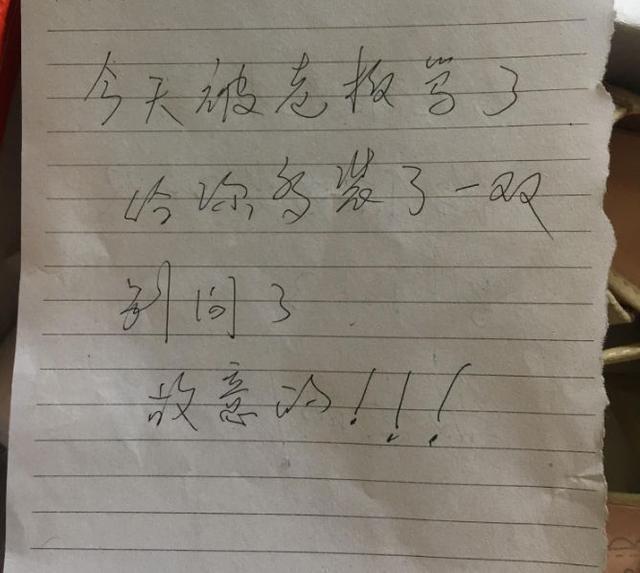 今天被老板骂了
给你多装了一双
别问了
故意的!!!